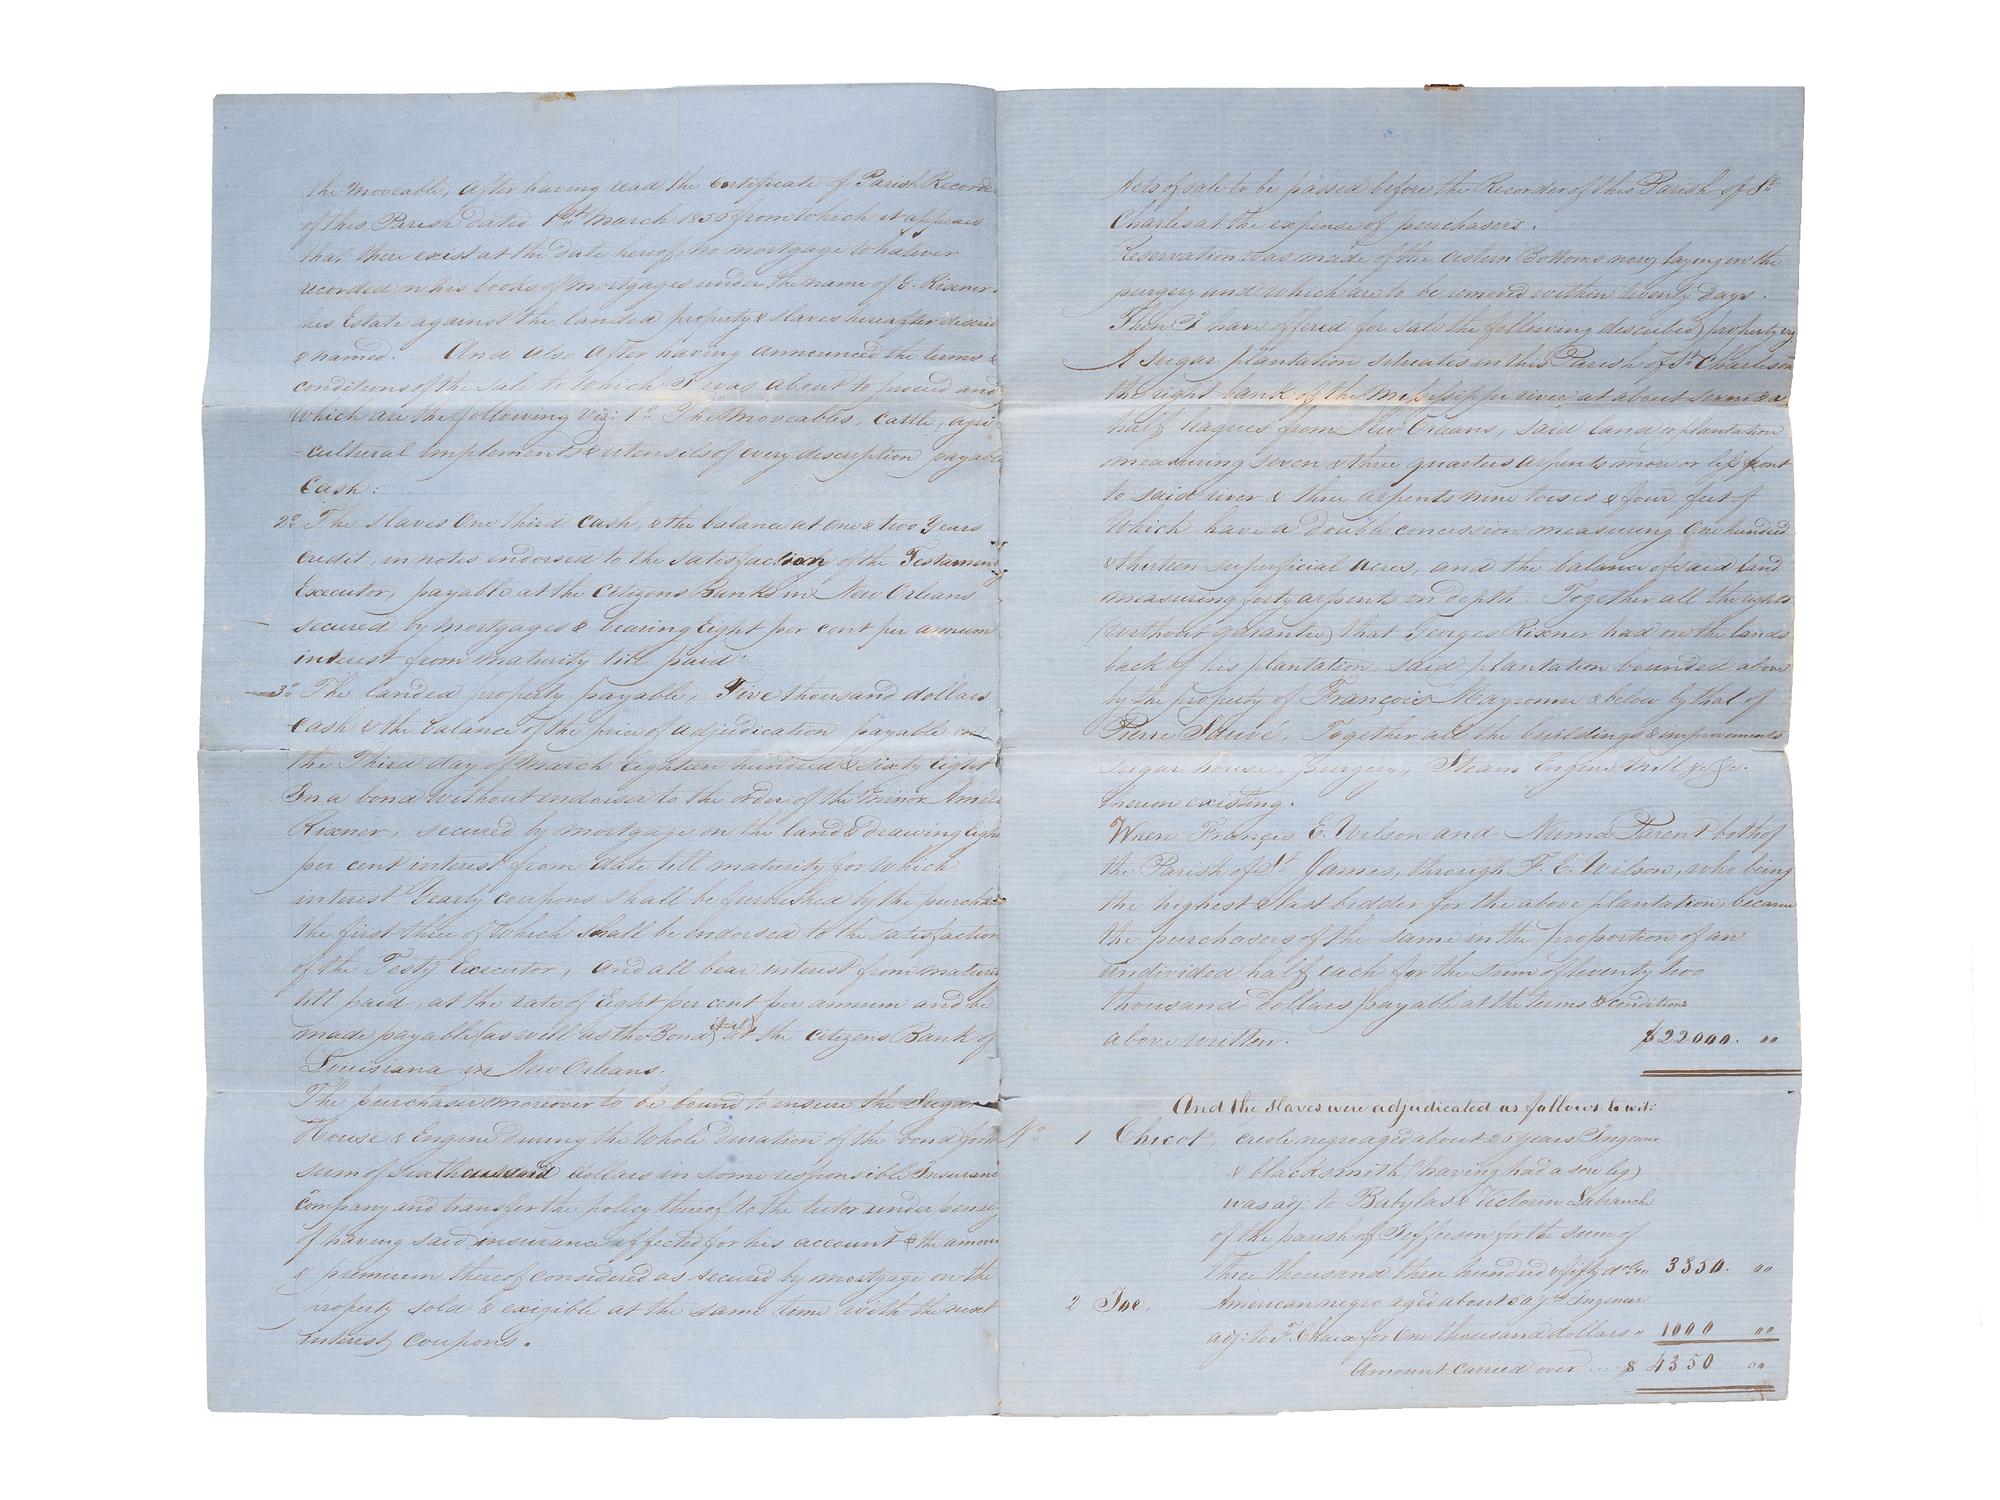 the moveable, after having read the Certificate of Parish Recorde
of this Parish dated 1st March 1855 from which it appears
that there exist at the date hereof, no mortgage whatever
recorded on his books of mortgages under the name of G. Rixner.
his Estate against the landed property & slaves hereafter describ
& named. And also after having announced the terms &
conditions of the sale to which I was about to proceed and
which are the following viz: 1o. The moveables, cattle, agri
-cultural implements & utensils of every description payable
Cash:
2o. The slaves One third cash, & the balance at one & two Years
credit, in notes endorsed to the satisfaction of the Testament
Executor, payable at the Citizens Banks in New Orleans
secured by mortgages & bearing Eight per cent per annum
interest from maturity till paid.
3o. The landed property payable, Five thousand dollars
cash & the balance of the price of adjudication payable on
the Third day of March Eighteen hundred & sixty Eight
In a bond without endorser to the order of the minor Amélie
Rixner, secured by mortgage on the land & drawing Eight
per cent interest from date till maturity for which
interest Yearly coupons shall be furnished by the purchas
the first three of which shall be endorsed to the satisfaction
of the Testy Executor, and all bear interest from maturi
till paid, at the rate of Eight per cent per annum and be
made payable (as well as the Bond) at the Citizens Bank of
Louisiana in New Orleans.
The purchaser moreover to be bound to insure the Sugar
House & Engine during the whole duration of the bond for th
sum of six thousand dollars in some responsible Insuranc
company and transfer the policy thereof to the tutor under penalty
of having said insurance effected for his account & the amoun
& premium thereof considered as secured by mortgage on the
property sold & exigible at the same time with the next
interest coupons.
Acts of sale to be passed before the Recorder of this Parish of St
Charles at the expense of purchasers.
Reservation was made of the cistern Bottoms now laying in the
purgery and which are to be removed within twenty days.
Then I have offered for sale the following described property viz
A sugar plantation situates in this Parish of St Charles on
the right bank of the Mississippi river at about seven & a
half leagues from New Orleans, said land or plantation
measuring seven & three quarters arpents more or less front
to said river & three arpents nine toises & four feet of
Which have a double concession measuring One hundred
& thirteen superficial acres, and the balance of said land
measuring forty arpents in depth. Together all the rights
(without garantie) that Georges Rixner had on the lands
back of his plantation, said plantation bounded above
by the property of François Mayronne & below by that of
Pierre Sauvé, Together all the buildings & improvements
sugar house, purgery, Steam Engine Mill &c &c.
thereon existing.
When Françis E. Wilson and Numa Parent both of
the Parish of St James, through F. E. Wilson, who being
the highest & last bidder for the above plantation, became
the purchasers of the same in the proportion of an
undivided half each for the sum of twenty two
thousand dollars payable at the terms & conditions
above written. $22000. "
And the slaves were adjudicated as follows to wit:
No. 1 Chicot, creole negro aged about 26 years, Ingenur
& blacksmith (having had a sore leg)
was adj: to Babylas & Victorin Labranche
of the parish of Jefferson for the sum of
three thousand three hundred & fifty dolrs " 3350. "
2 Joe, American negro aged about 50 yrs Ingenur
adj: to F. Chaix for One thousand dollars " 1000 "
Amount carried over .... $ 4350 "